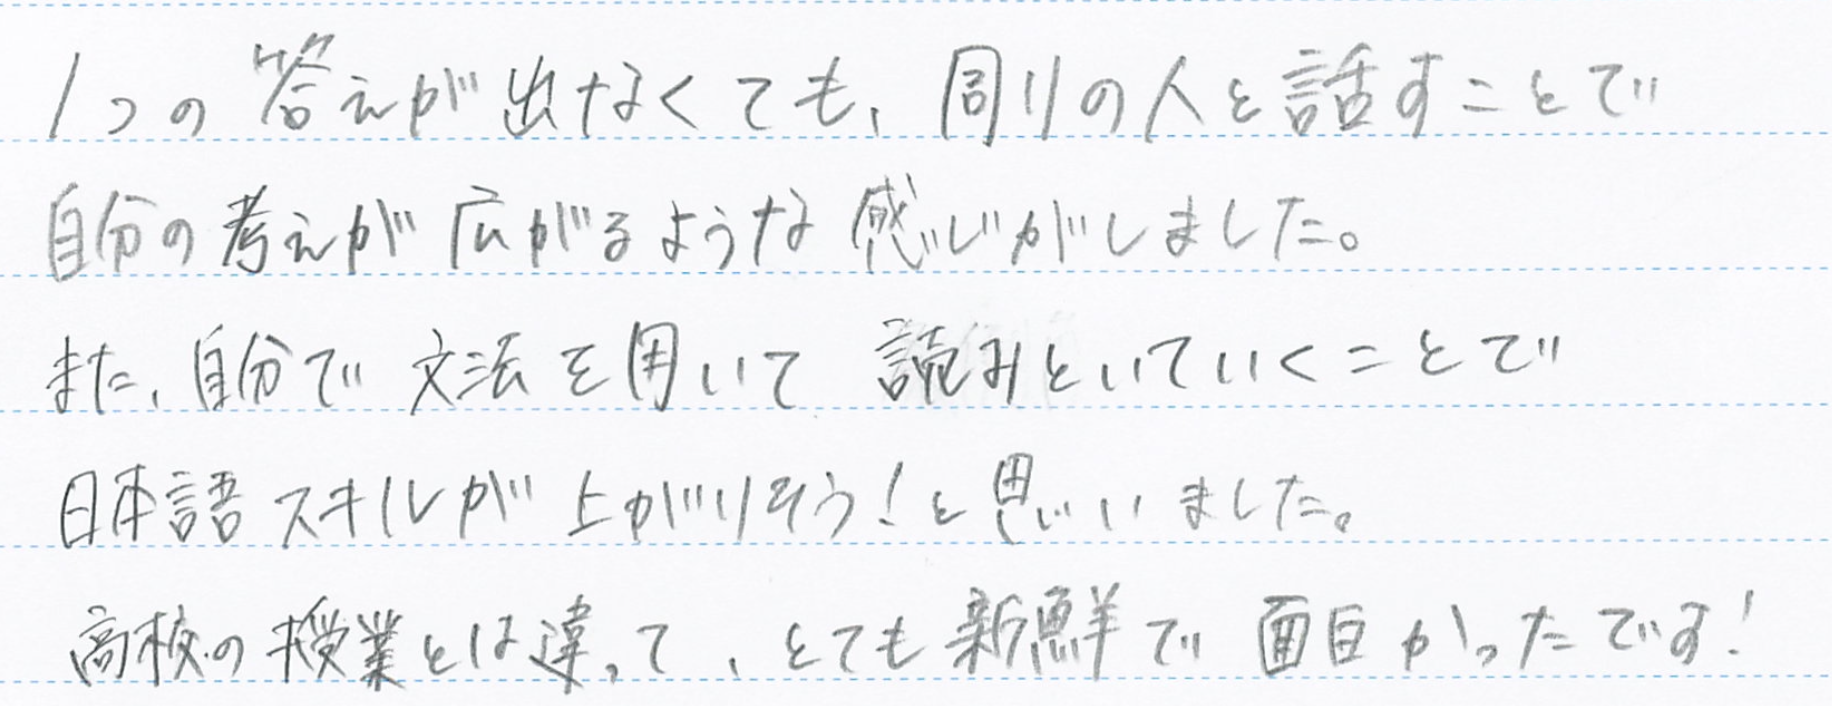 1つの答えが出なくても、周りの人と話すことで
自分の考えが広がるような感じがしました。
また、自分で文法を用いて読みといていくことで
日本語スキルが上がりそう！と思いました。
高校の授業とは違って、とても新鮮で面白かったです！